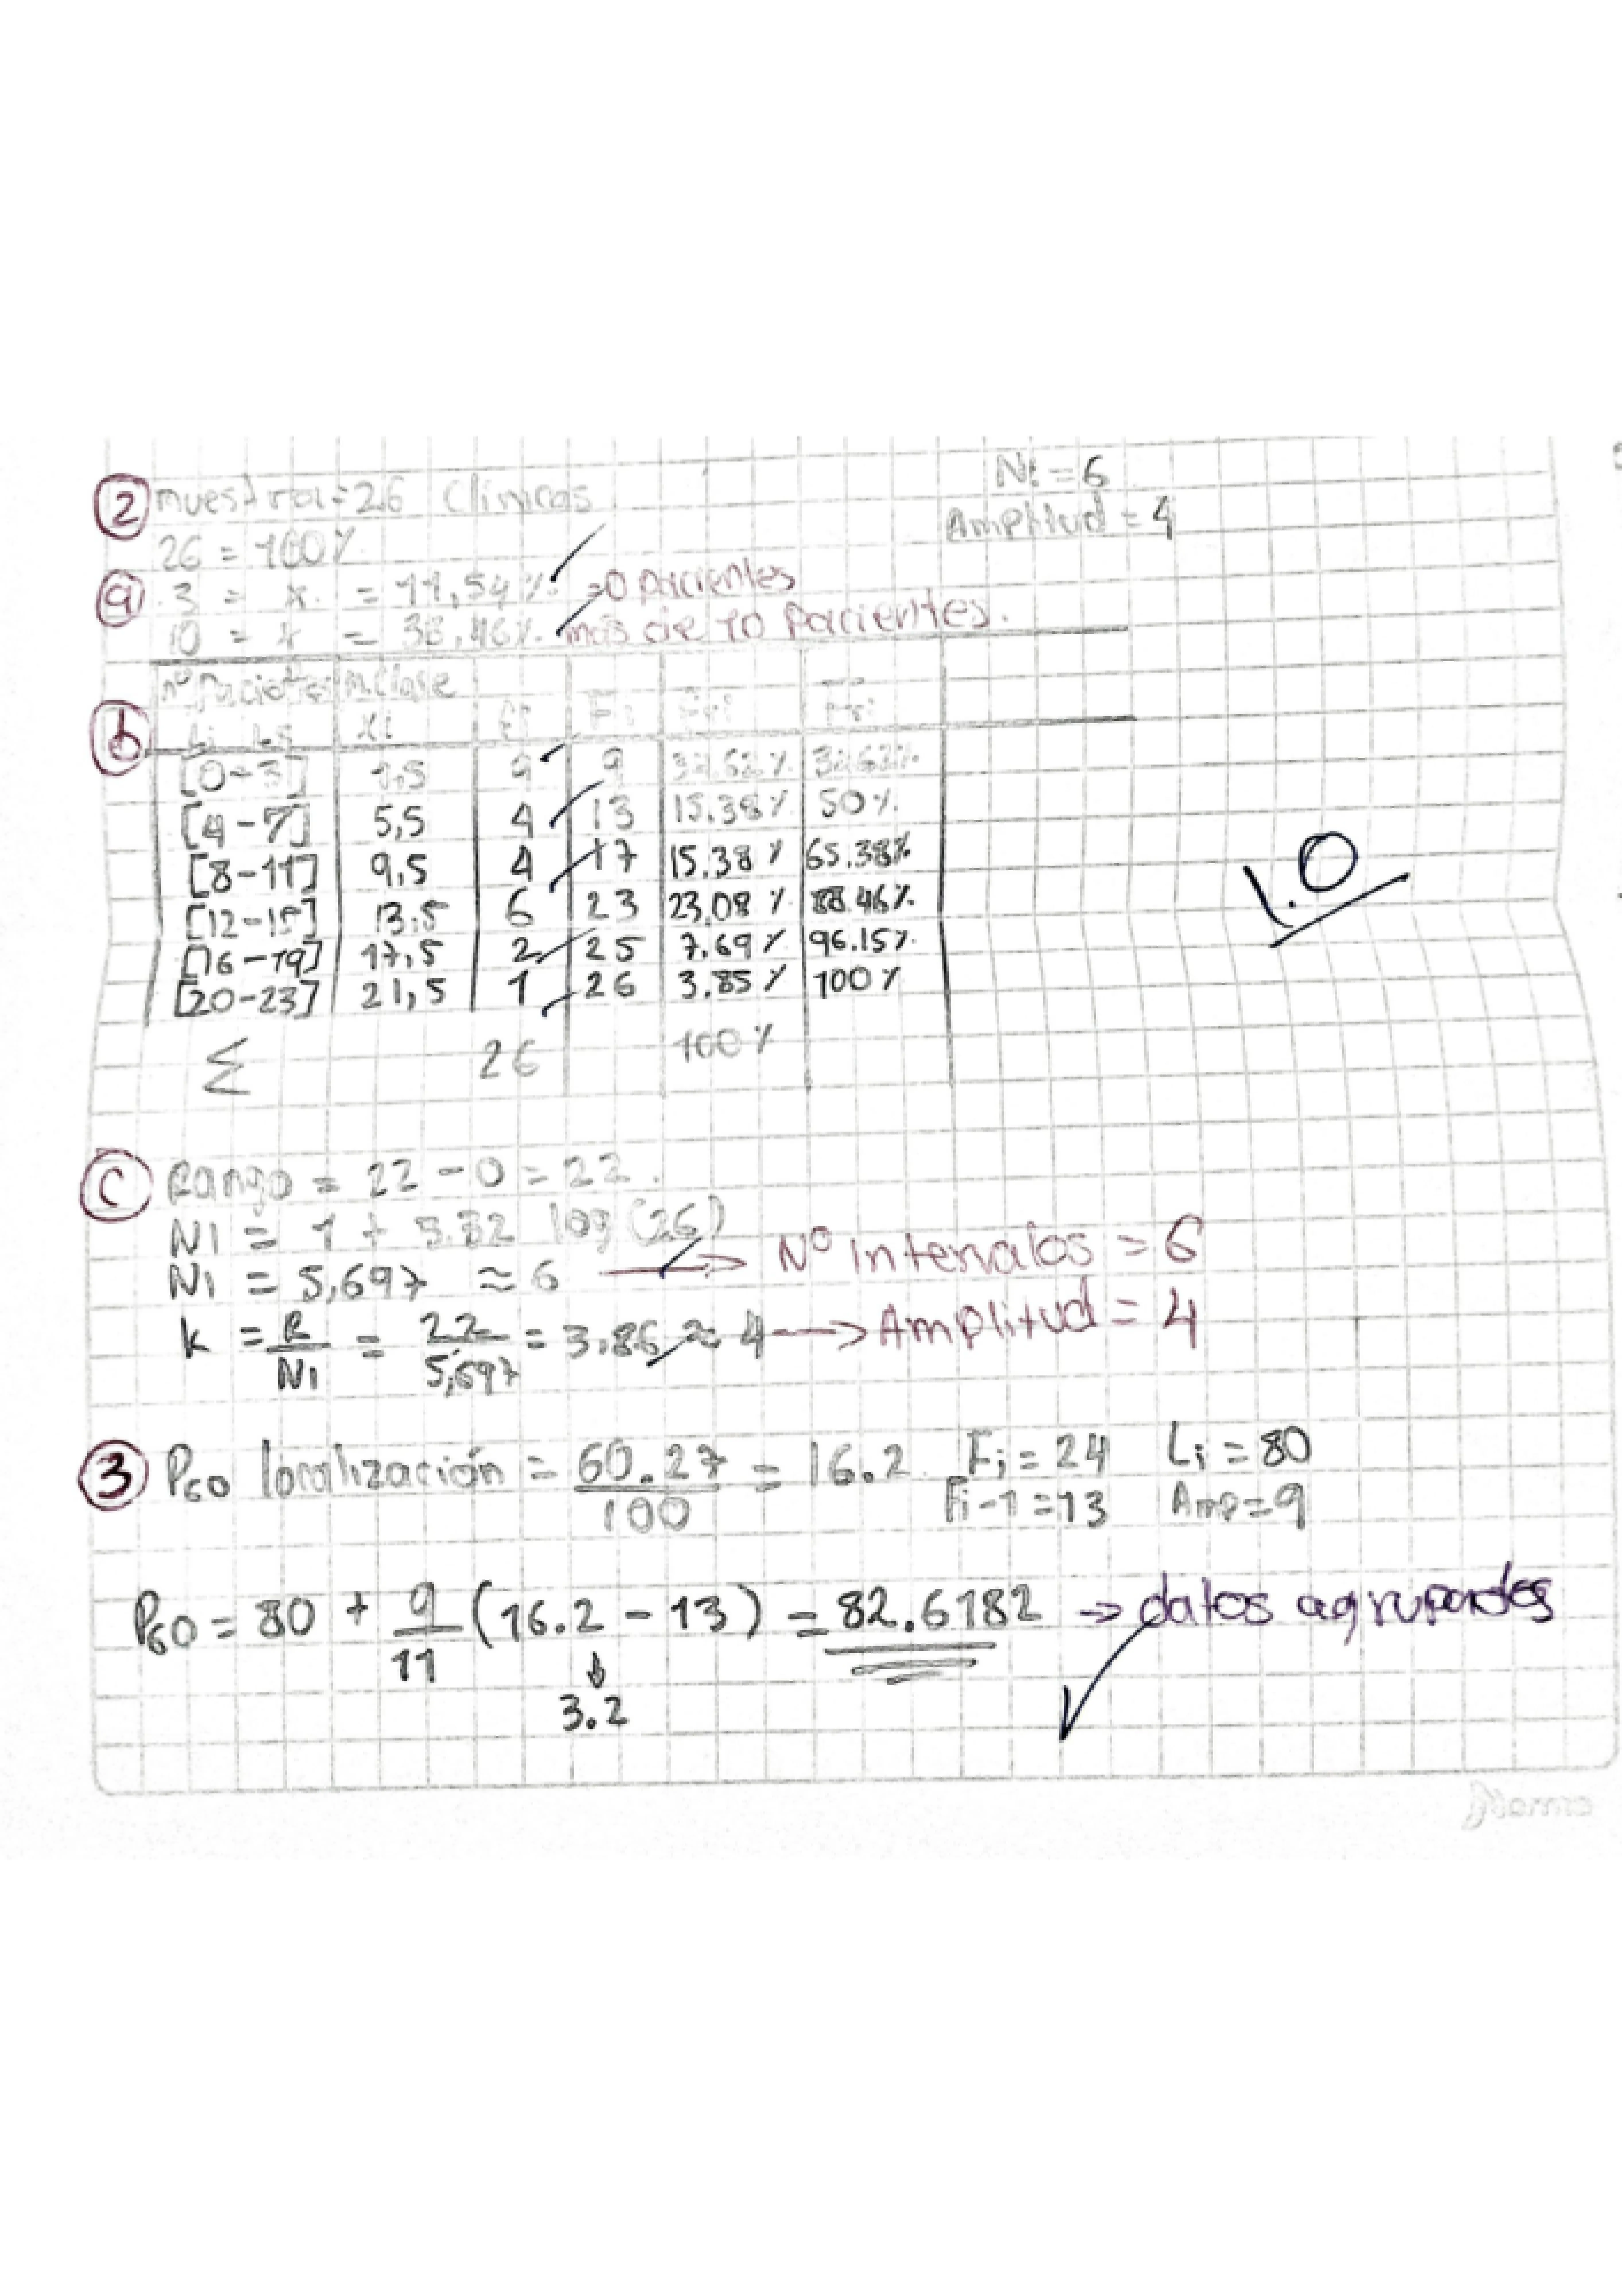 Ni = 6
② muestra = 26 Clínicas
Amplitud = 4
26 = 100%
ⓐ 3 = x = 11,54% → 0 pacientes
10 = x = 38,46% más de 10 pacientes.
nº Pacientes M. Clase
ⓑ Li Ls Xi fi Fi
[0-3] 1,5 9 9
[4-7] 5,5 4 13 15.38% 50%
[8-11] 9,5 4 17 15.38% 65.38%
[12-15] 13.5 6 23 23.08% 88.46%
[16-19] 17,5 2 25 7.69% 96.15%
[20-23] 21,5 1 26 3.85% 100%
Σ 26 100%
1.0
ⓒ Rango = 22 - 0 = 22.
NI = 1 + 3.32 log (26)
NI = 5,697 ≈ 6 → Nº intervalos = 6
K = R/NI = 22/5,697 = 3.86 ≈ 4 → Amplitud = 4
③ P60 localización = 60.27/100 = 16.2 Fi = 24 Li = 80
Fi-1 = 13 Amp = 9
P60 = 80 + 9/11 (16.2 - 13) = 82.6182 → datos agrupados
3.2
Norma